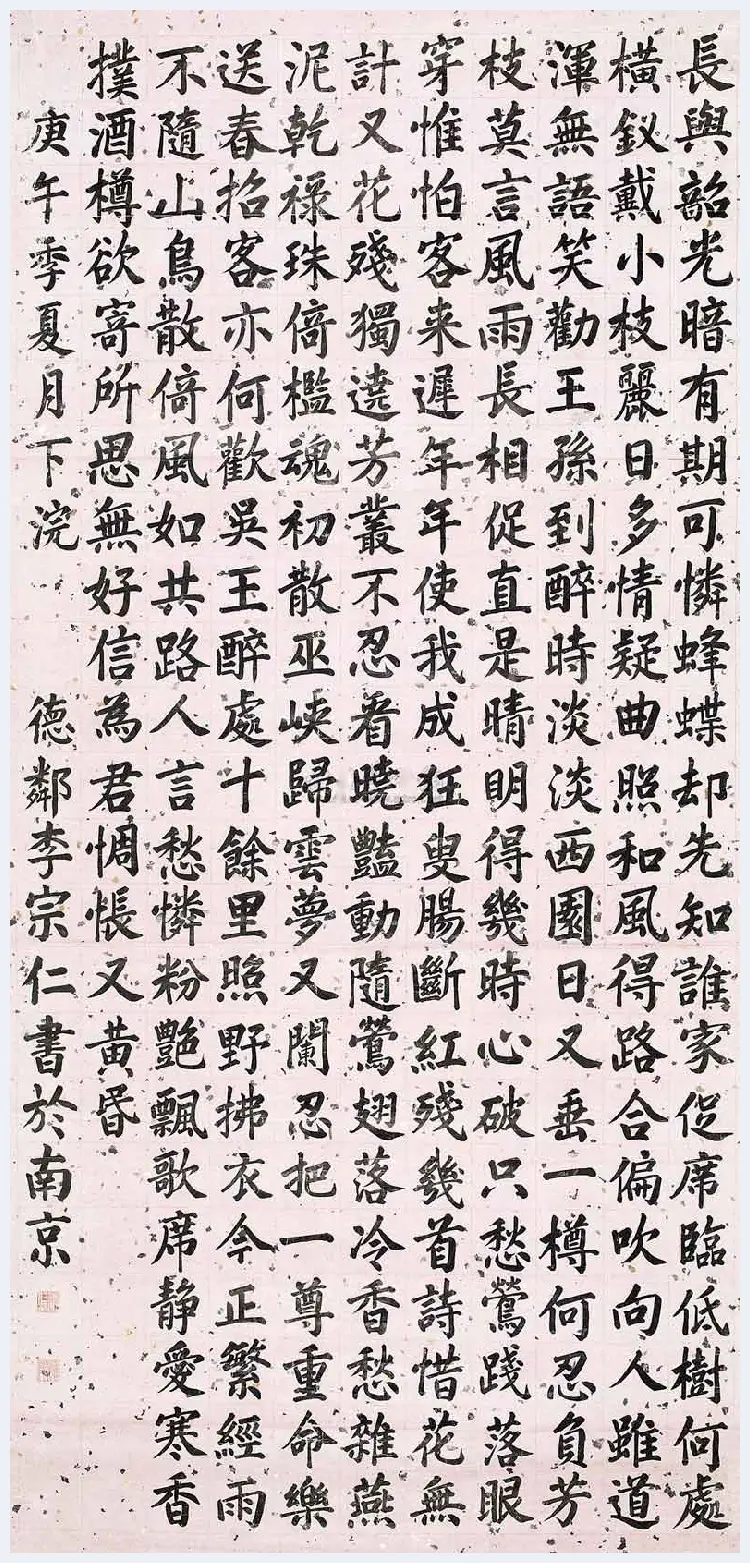 長與韶光暗有期可憐蜂蝶却先知誰家促席臨低樹何處
橫釵戴小枝麗日多情疑曲照和風得路合偏吹向人雖道
渾無語笑勸王孫到醉時淡淡西園日又垂一樽何忍負芳
枝莫言風雨長相促直是晴明得幾時心破只愁鶯踐落眼
穿惟怕客来遲年年使我成狂叟腸斷紅殘幾首詩惜花無
計又花殘獨遶芳叢不忍看曉豔動隨鶯翅落冷香愁雜燕
泥乾祿珠倚檻魂初散巫峽歸雲夢又闌忍把一尊重命樂
送春招客亦何歡吳王醉處十餘里照野拂衣今正繁經雨
不隨山鳥散倚風如共路人言愁憐粉艷飄歌席靜愛寒香
撲酒樽欲寄所思無好信為君惆悵又黃昏
庚午季夏月下浣 德鄰李宗仁書於南京